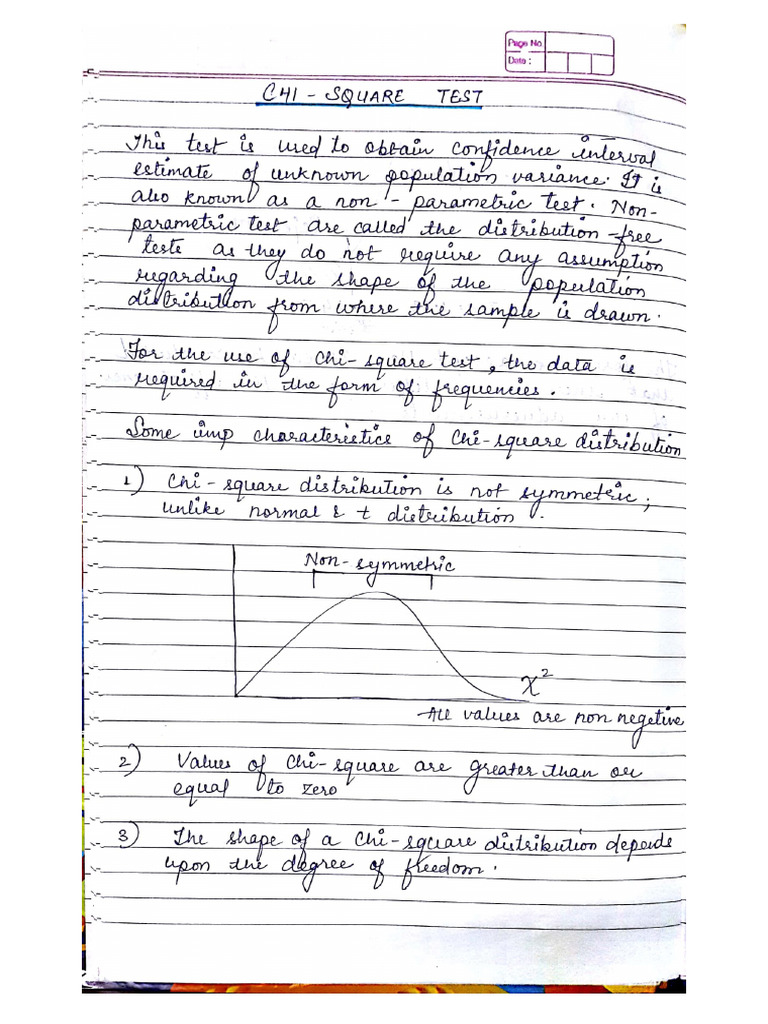 Page No.
Date :
CHI - SQUARE TEST
This test is used to obtain confidence interval
estimate of unknown population variance. It is
also known as a non - parametric test. Non-
parametric test are called the distribution-free
tests as they do not require any assumption
regarding the shape of the population
distribution from where the sample is drawn.
For the use of chi-square test, the data is
required in the form of frequencies.
Some imp characteristics of chi-square distribution
1) Chi-square distribution is not symmetric;
unlike normal & t distribution.
Non-symmetric
χ²
All values are non negetive
2) Values of chi-square are greater than or
equal to zero
3) The shape of a chi-square distribution depends
upon the degree of freedom.